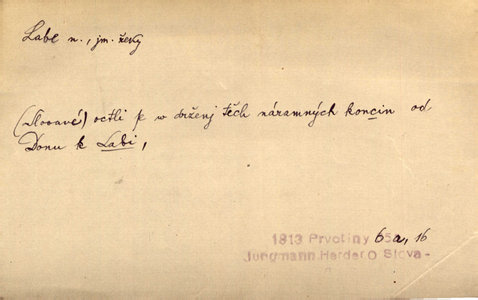 Labe n., jm. řeky
(Slované) octli se w drženj těch náramných koncin od
Donu k Labi,
1813 Prvotiny 65a, 16
Jungmann, Herder O Slova-